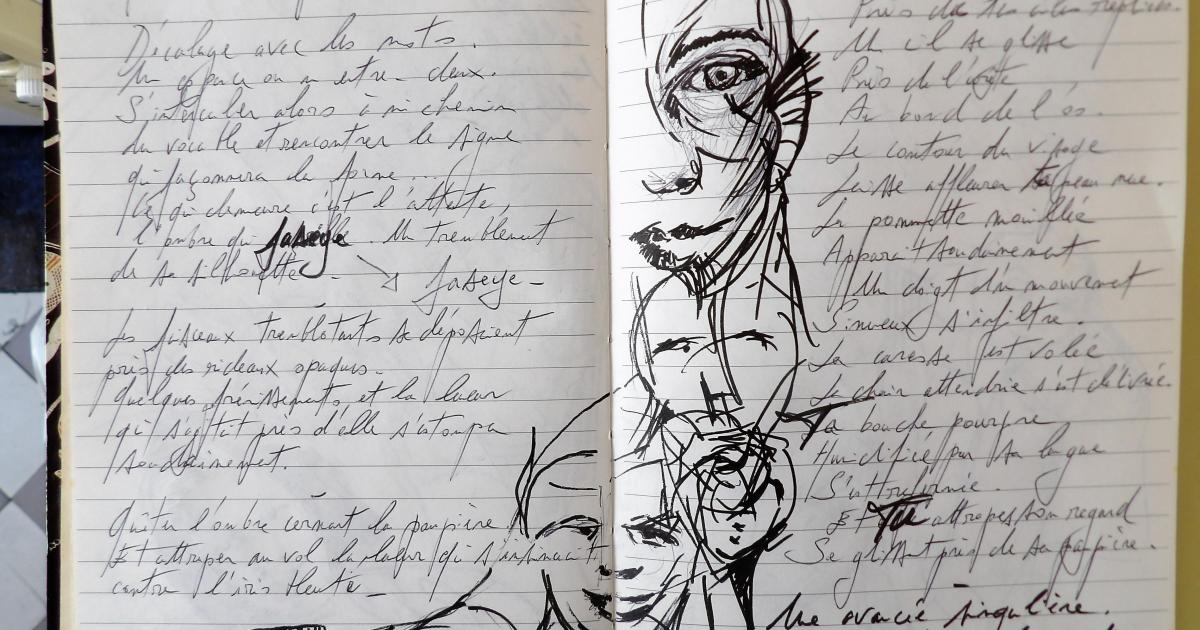 Décalage avec les mots.
Un espace ou un entre-deux.
S'intercaler alors à mi chemin
du vocable et rencontrer le signe
qui façonnera la forme...
Ce qui demeure c'est l'attente,
l'ombre qui faseye. Un tremblement
de sa silhouette -
faseye -
Les faisceaux tremblotants se déposaient
près des rideaux opaques.
Quelques frémissements et la lueur
qui s'agitait près d'elle s'estompa
soudainement.
Quitter l'ombre cernant la paupière.
Et attraper au vol la lueur qui s'insinuait
contre l'iris bleuté -
Près de tes ailes repliées.
Un cil se glisse
Près de l'arête
Au bord de l'os.
Le contour du visage
Laisse affleurer ta peau nue.
La pommette mouillée
Apparait soudainement
Un doigt d'un mouvement
Sinueux s'infiltre.
La caresse est volée
La chair attendrie s'est délivrée.
Ta bouche pourpre
Humidifiée par sa langue
S'est
Et Tu attrapes son regard
Se glissant près de sa paupière.
Une avancée singulière.